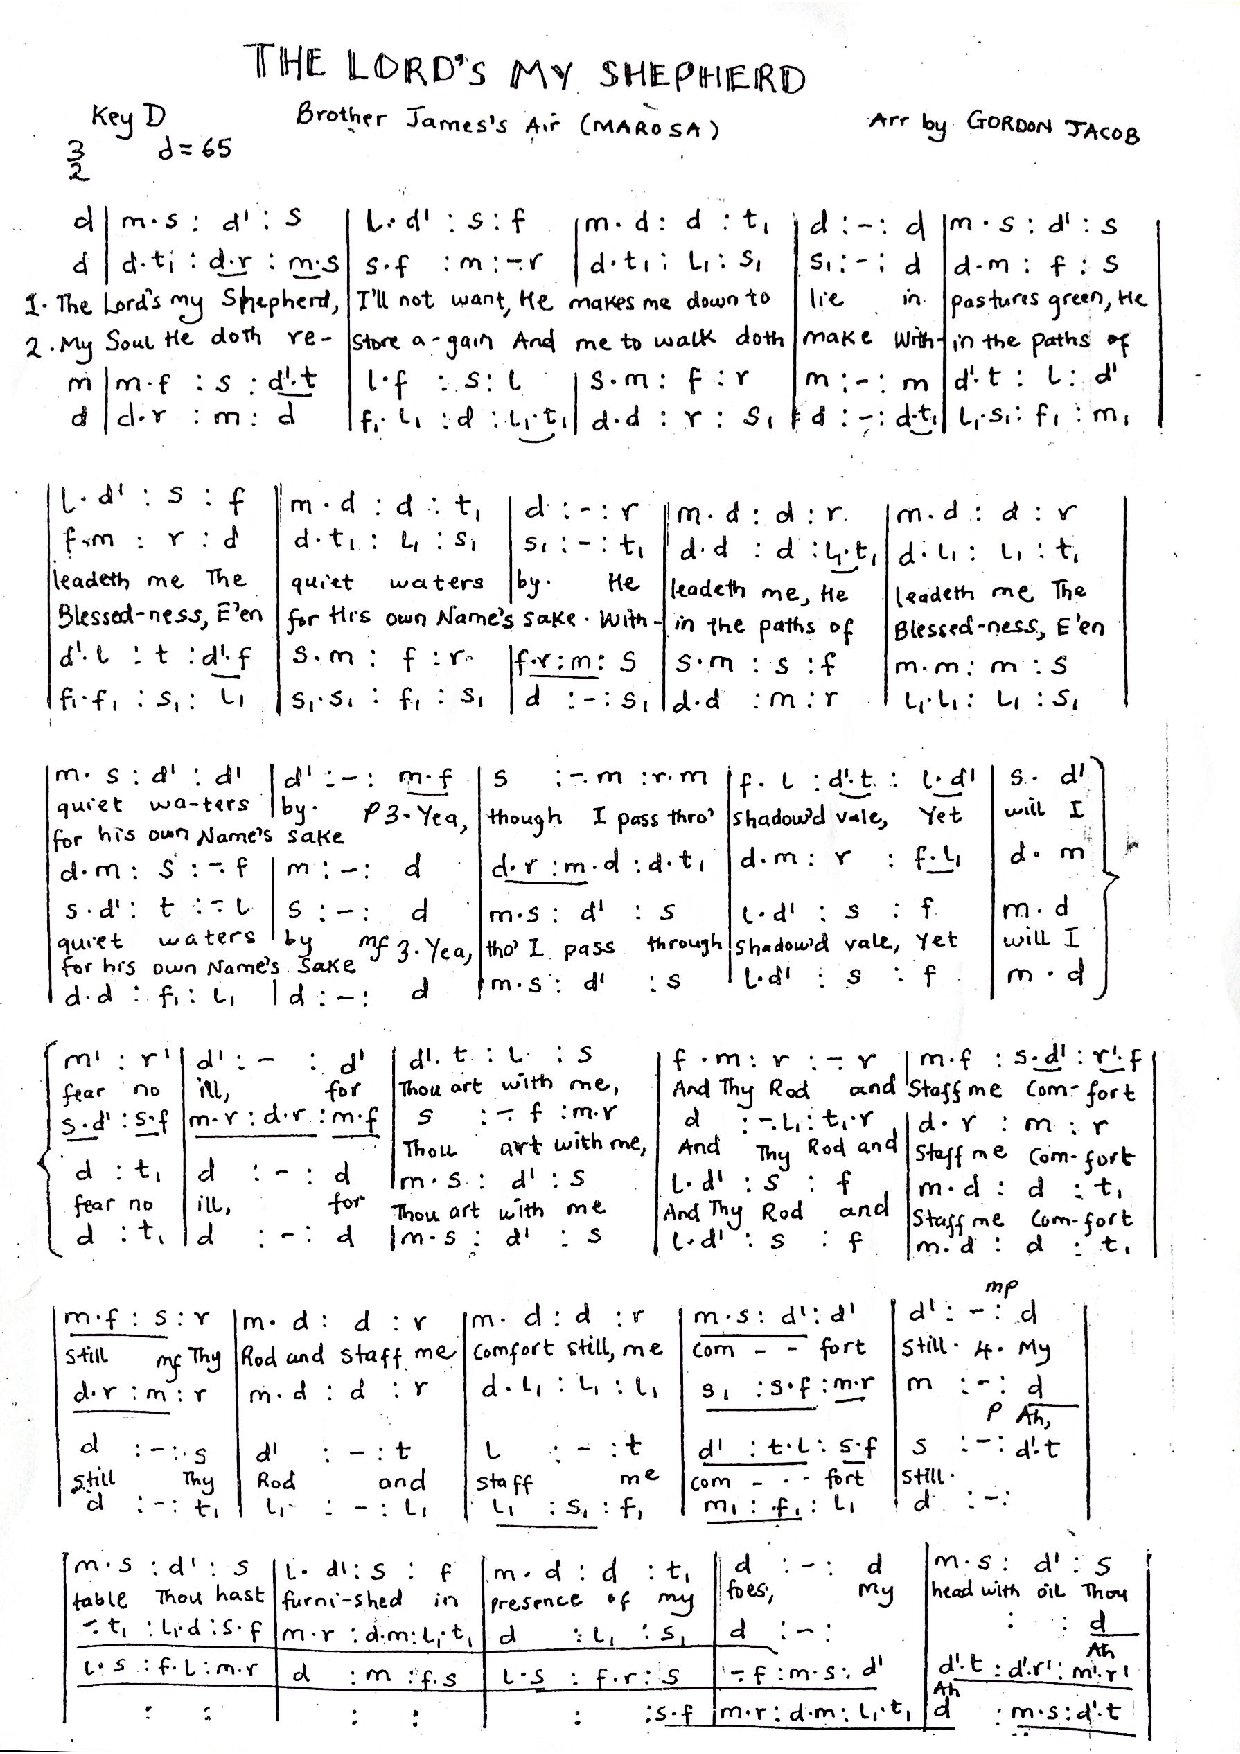 THE LORD'S MY SHEPHERD
Key D Brother James's Air (MAROSA) Arr by GORDON JACOB
3/2 d = 65
d | m.s : d' : s | l.d' : s : f | m.d : d : t₁ | d : - : d | m.s : d' : s |
d | d.t₁ : d.r : m.s | s.f : m : -.r | d.t₁ : l₁ : s₁ | s₁ : - : d | d.m : f : s
1. The Lord's my Shepherd, | I'll not want, He makes me down to | lie in | pastures green, He
2. My Soul He doth re- | store a-gain And me to walk doth | make With- | in the paths of
m | m.f : s : d'.t | l.f : s : l | s.m : f : r | m : - : m | d'.t : l : d'
d | d.r : m : d | f₁.l₁ : d : l₁.t₁ | d.d : r : s₁ | d : - : d.t₁ | l₁.s₁ : f₁ : m₁ |
| l.d' : s : f | m.d : d : t₁ | d : - : r | m.d : d : r | m.d : d : r |
f.m : r : d | d.t₁ : l₁ : s₁ | s₁ : - : t₁ | d.d : d : l₁.t₁ | d.l₁ : l₁ : t₁
leadeth me The | quiet waters | by. He | leadeth me, He | leadeth me The
Blessed-ness, E'en | for His own Name's sake. With- | in the paths of | Blessed-ness, E'en
d'.l : t : d'.f | s.m : f : r | f.r : m : s | s.m : s : f | m.m : m : s
f₁.f₁ : s₁ : l₁ | s₁.s₁ : f₁ : s₁ | d : - : s₁ | d.d : m : r | l₁.l₁ : l₁ : s₁
| m.s : d' : d' | d' : - : m.f | s : -.m : r.m | f.l : d'.t : l.d' | s. d'
quiet wa-ters | by. P 3. Yea, | though I pass thro' | shadow'd vale, Yet | will I
for his own Name's sake
d.m : s : -.f | m : - : d | d.r : m.d : d.t₁ | d.m : r : f.l₁ | d. m
s.d' : t : -.l | s : - : d | m.s : d' : s | l.d' : s : f | m.d
quiet waters | by mf 3. Yea, | tho' I pass through | shadow'd vale, Yet | will I
for his own Name's sake
d.d : f₁ : l₁ | d : - : d | m.s : d' : s | l.d' : s : f | m.d
m' : r' | d' : - : d' | d'.t : l : s | f.m : r : -.r | m.f : s.d' : r'.f |
fear no | ill, for | Thou art with me, | And Thy Rod and | Staff me Com-fort
s.d' : s.f | m.r : d.r : m.f | s : -.f : m.r | d : -.l₁ : t₁.r | d.r : m : r
Thou art with me, | And Thy Rod and | Staff me Com-fort
d : t₁ | d : - : d | m.s : d' : s | l.d' : s : f | m.d : d : t₁
fear no | ill, for | Thou art with me | And Thy Rod and | Staff me Com-fort
d : t₁ | d : - : d | m.s : d' : s | l.d' : s : f | m.d : d : t₁
mp
| m.f : s : r | m.d : d : r | m.d : d : r | m.s : d' : d' | d' : - : d
still mf Thy | Rod and staff me | Comfort still, me | com - - fort | still. 4. My
d.r : m : r | m.d : d : r | d.l₁ : l₁ : l₁ | s₁ : s.f : m.r | m : - : d
P Ah,
d : - : s | d' : - : t | l : - : t | d' : t.l : s.f | s : - : d'.t
still Thy | Rod and | staff me | com - - - fort | still.
d : - : t₁ | l₁ : - : l₁ | l₁ : s₁ : f₁ | m₁ : f₁ : l₁ | d : - :
| m.s : d' : s | l.d' : s : f | m.d : d : t₁ | d : - : d | m.s : d' : s
table Thou hast | furni-shed in | presence of my | foes, My | head with oil Thou
-.t₁ : l₁.d : s.f | m.r : d.m : l₁.t₁ | d : l₁ : s₁ | d : - : | : : d
Ah
l.s : f.l : m.r | d : m : f.s | l.s : f.r : s | -.f : m.s : d' | d'.t : d'.r' : m'.r'
Ah
: : | : : | : : s.f | m.r : d.m : l₁.t₁ | d : m.s : d'.t